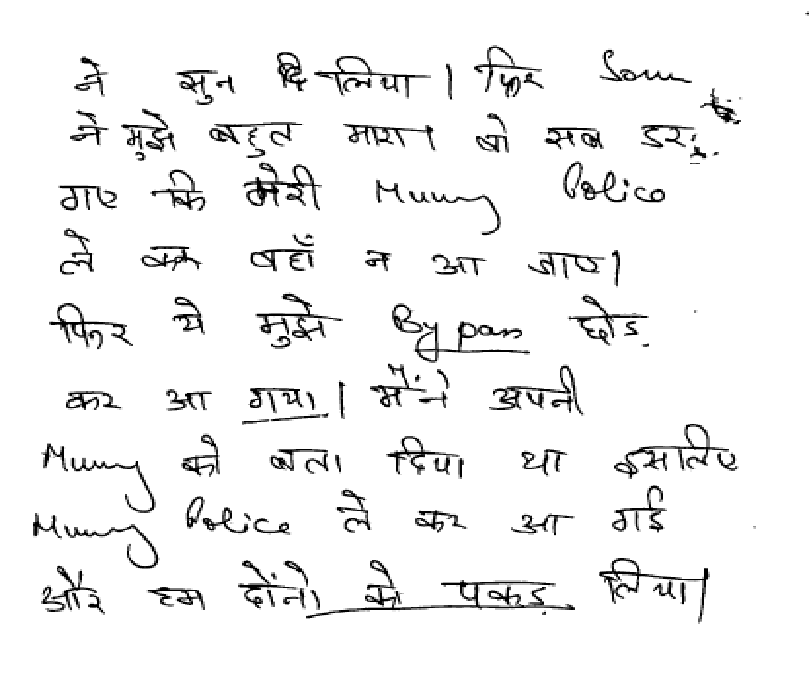 ने सुन लिया। फिर Som
ने मुझे बहुत मारा। वो सब डर
गए कि मेरी Mummy Police
ले कर वहाँ न आ जाए।
फिर ये मुझे By pass छोड़
कर आ गया। मैंने अपनी
Mummy को बता दिया था इसलिए
Mummy Police ले कर आ गई
और हम दोंनो को पकड़ लिया।